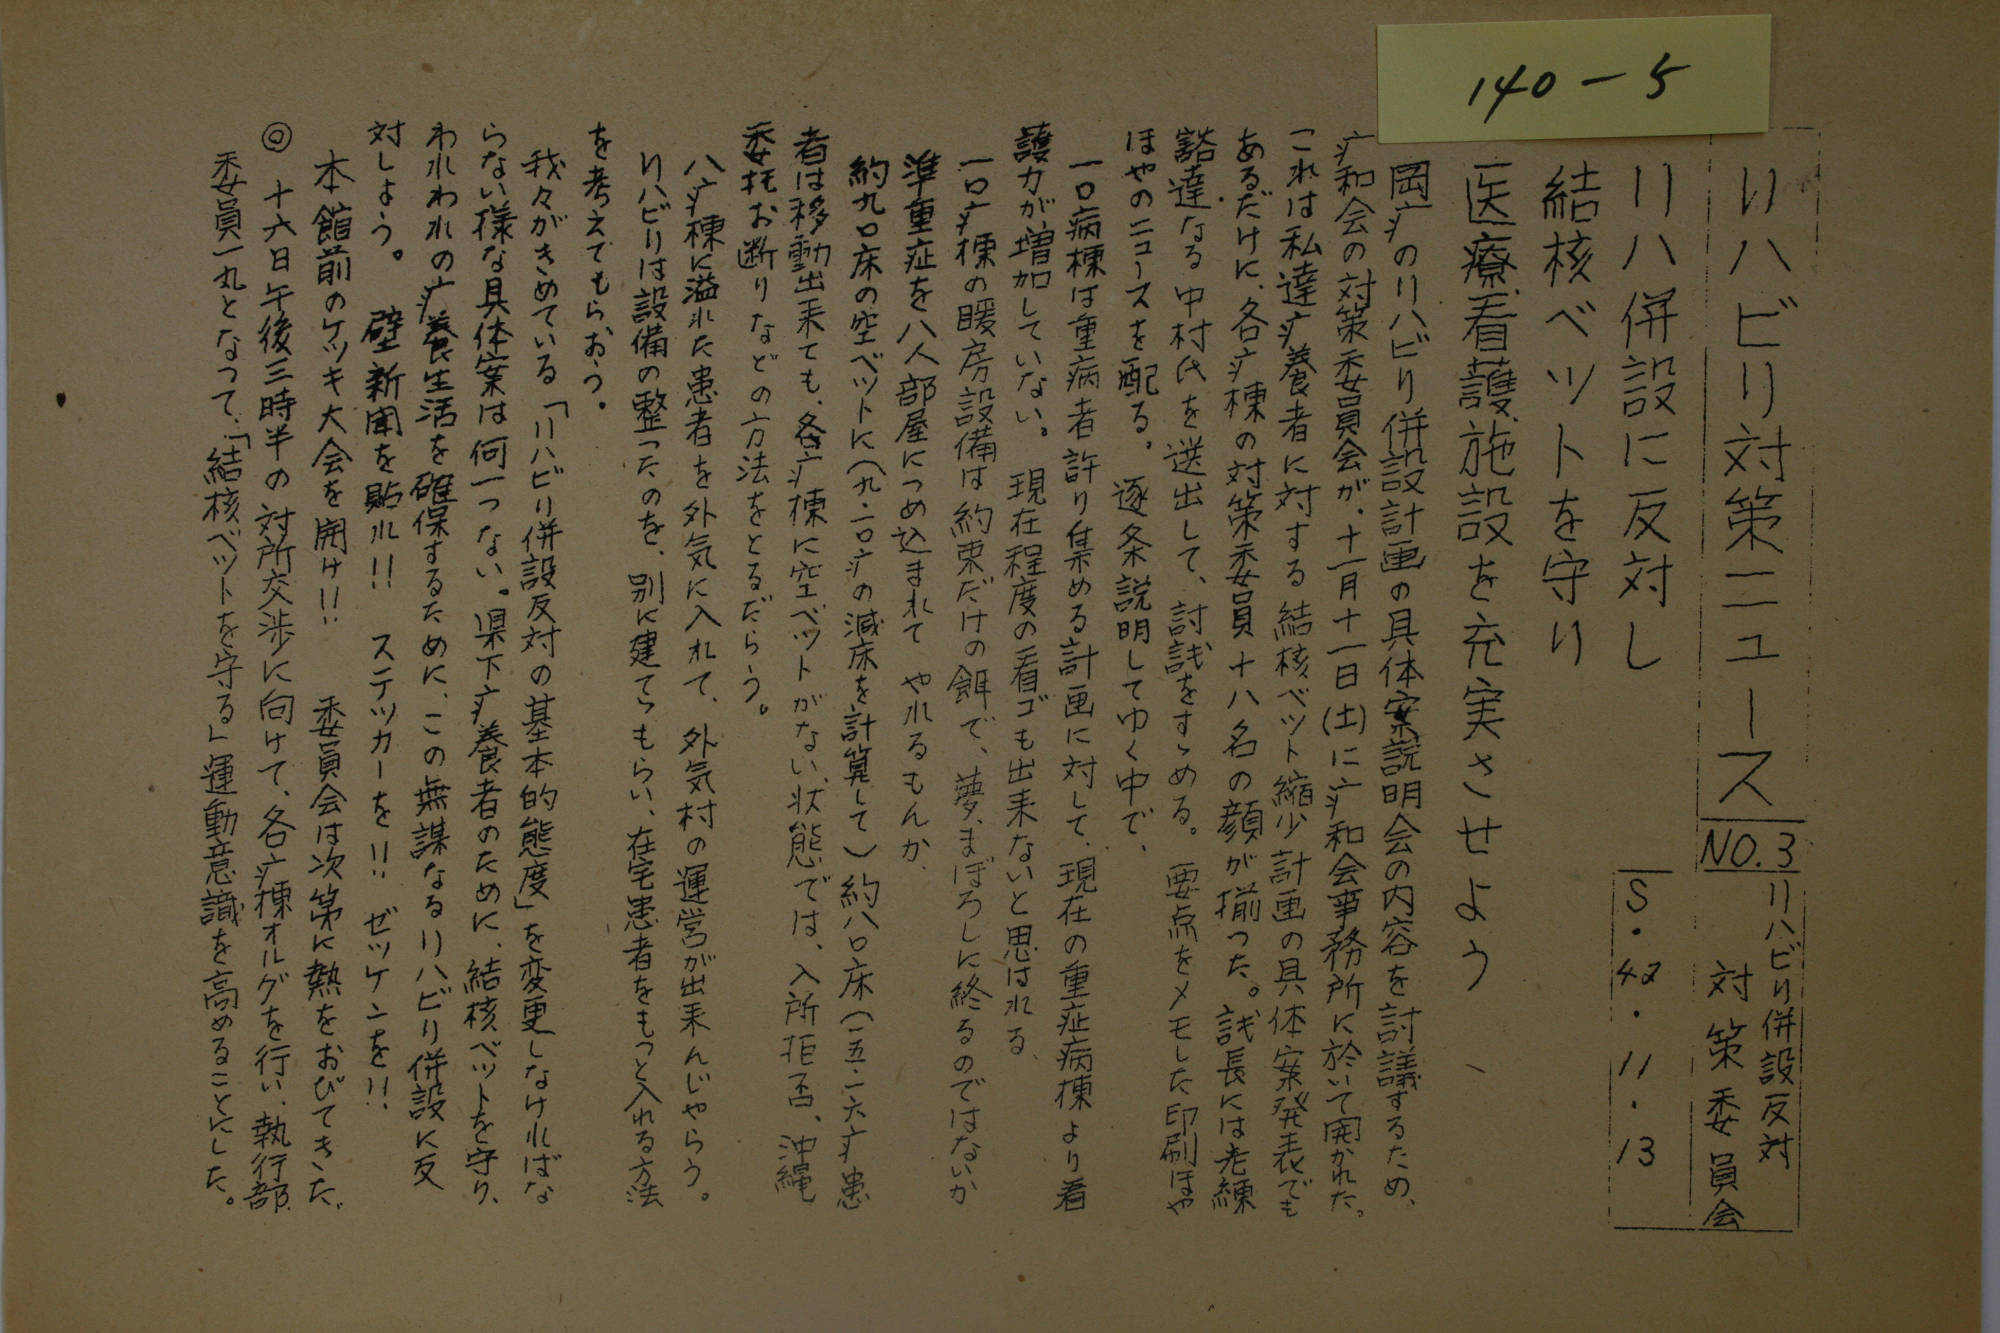 140-5
リハビリ対策ニュース
NO.3
リハビリ併設反対
対策委員会
S・42・11・13
リハ併設に反対し
結核ベットを守り
医療看護施設を充実させよう
岡疒のリハビリ併設計画の具体案説明会の内容を討議するため、
疒和会の対策委員会が、十一月十一日(土)に疒和会事務所に於いて開かれた。
これは私達疒養者に対する結核ベット縮少計画の具体案発表でも
あるだけに、各疒棟の対策委員十八名の顔が揃った。議長には老練
豁達なる中村氏を送出して、討議をすゝめる。要点をメモした印刷ほや
ほやのニュースを配る。逐条説明してゆく中で、
一〇病棟は重病者許り集める計画に対して、現在の重症病棟より看
護力が増加していない。現在程度の看ゴも出来ないと思はれる、
一〇疒棟の暖房設備は約束だけの餌で、夢、まぼろしに終るのではないか
準重症を八人部屋につめ込まれてやれるもんか、
約九〇床の空ベットに(九・一〇疒の減床を計算して)約八〇床(一五・一六疒患
者は移動出来ても、各疒棟に空ベットがない状態では、入所拒否、沖縄
委托お断りなどの方法をとるだらう。
八疒棟に溢れた患者を外気に入れて、外気村の運営が出来んじゃらう。
リハビリは設備の整ったのを、別に建てゝもらい、在宅患者をもっと入れる方法
を考えてもらおう。
我々がきめている「リハビリ併設反対の基本的態度」を変更しなければな
らない様な具体案は何一つない。県下疒養者のために、結核ベットを守り、
われわれの疒養生活を確保するために、この無謀なるリハビリ併設に反
対しよう。壁新聞を貼れ!!ステッカーを!!ゼッケンを!!
本館前のケッキ大会を開け!!委員会は次第に熱をおびてきた。
◎十六日午後三時半の対所交渉に向けて、各疒棟オルグを行い、執行部
委員一丸となって、「結核ベットを守る」運動意識を高めることにした。